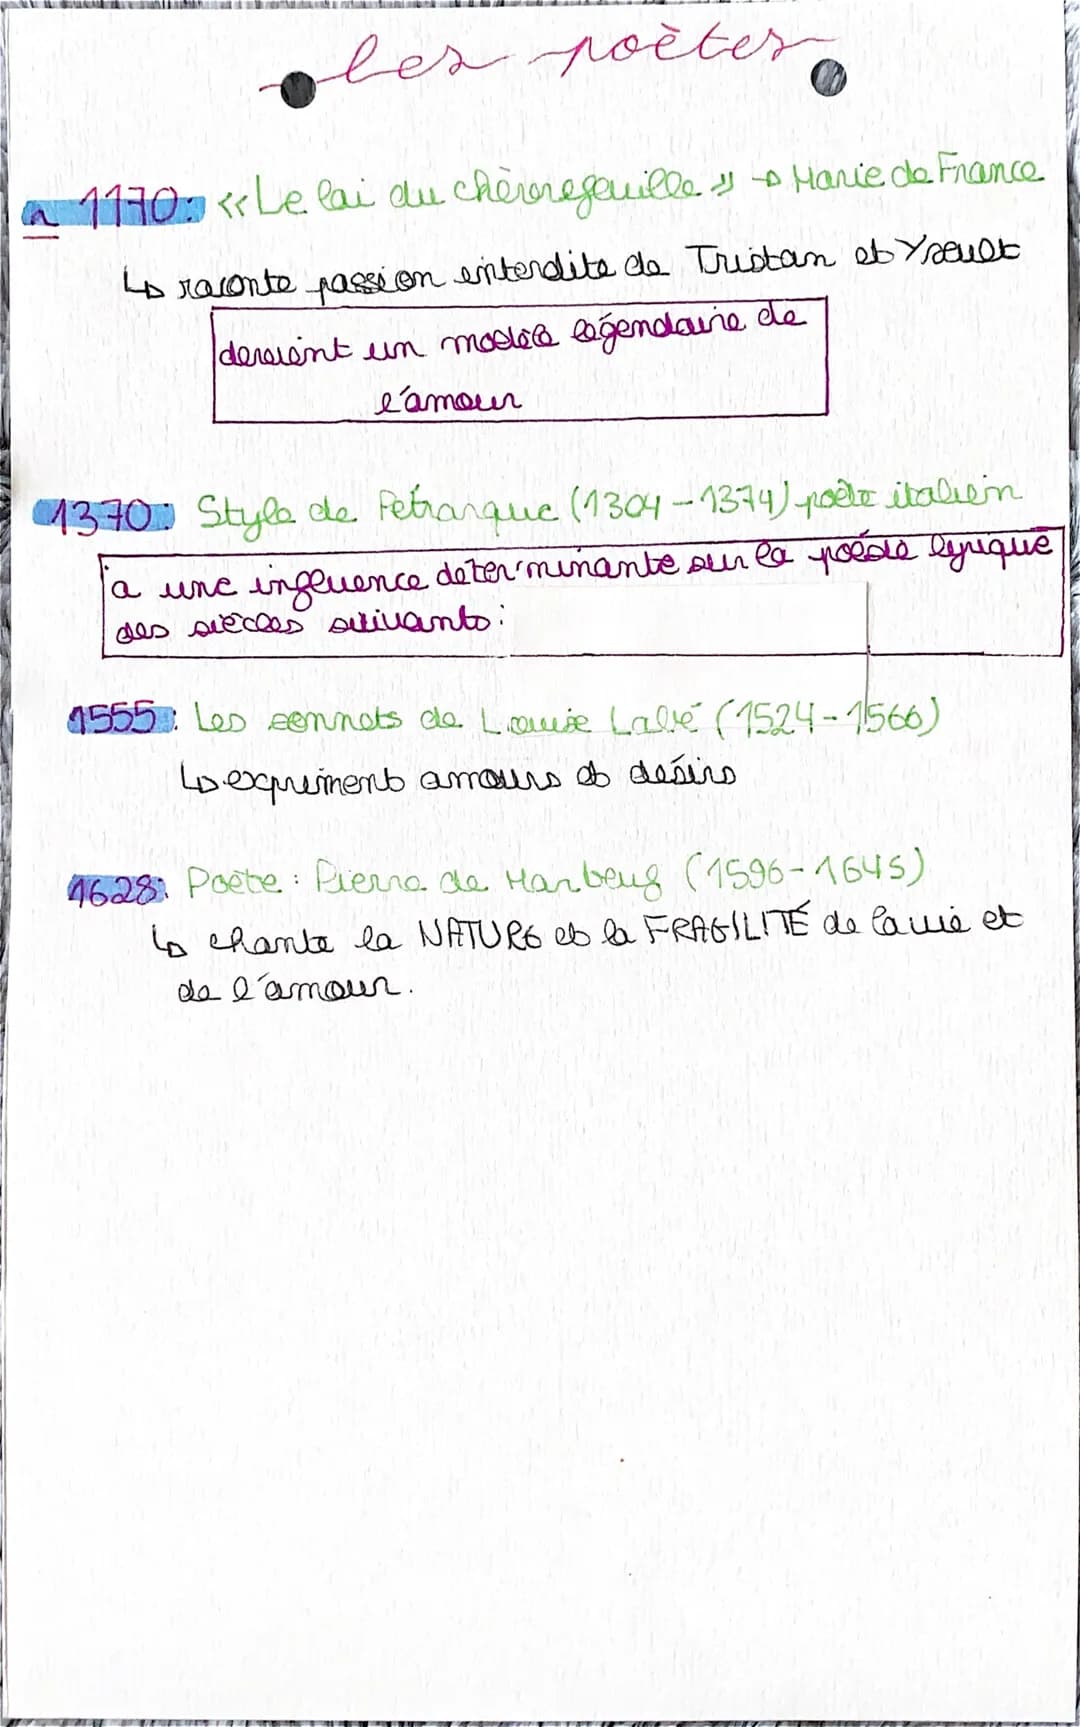 les poètes
n 1170: « Le lai du chèvrefeuille » → Marie de France
↳ raconte passion interdite de Tristan et Yseult
devient un modèle légendaire de
l'amour
1370: Style de Pétrarque (1304-1374) poète italien
a une influence déterminante sur la poésie lyrique
des siècles suivants:
1555: Les sonnets de Louise Labé (1524-1566)
↳ expriment amours et désirs
1628: Poète: Pierre de Marbeuf (1596-1645)
↳ chante la NATURE et la FRAGILITÉ de la vie et
de l'amour.